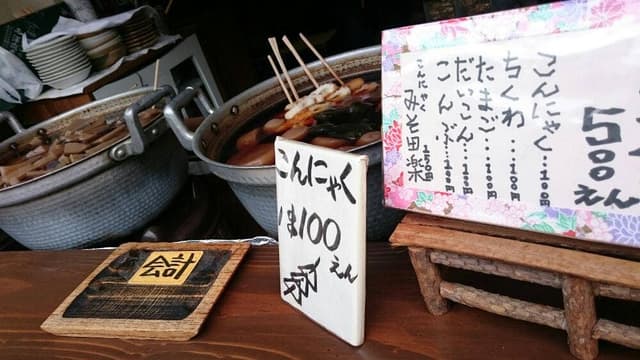 500えん
こんにゃく…100円
ちくわ…100円
たまご…100円
だいこん…100円
こんぶ…100円
こんにゃく
みそ田楽 150円
こんにゃく
1ま100えん
会計